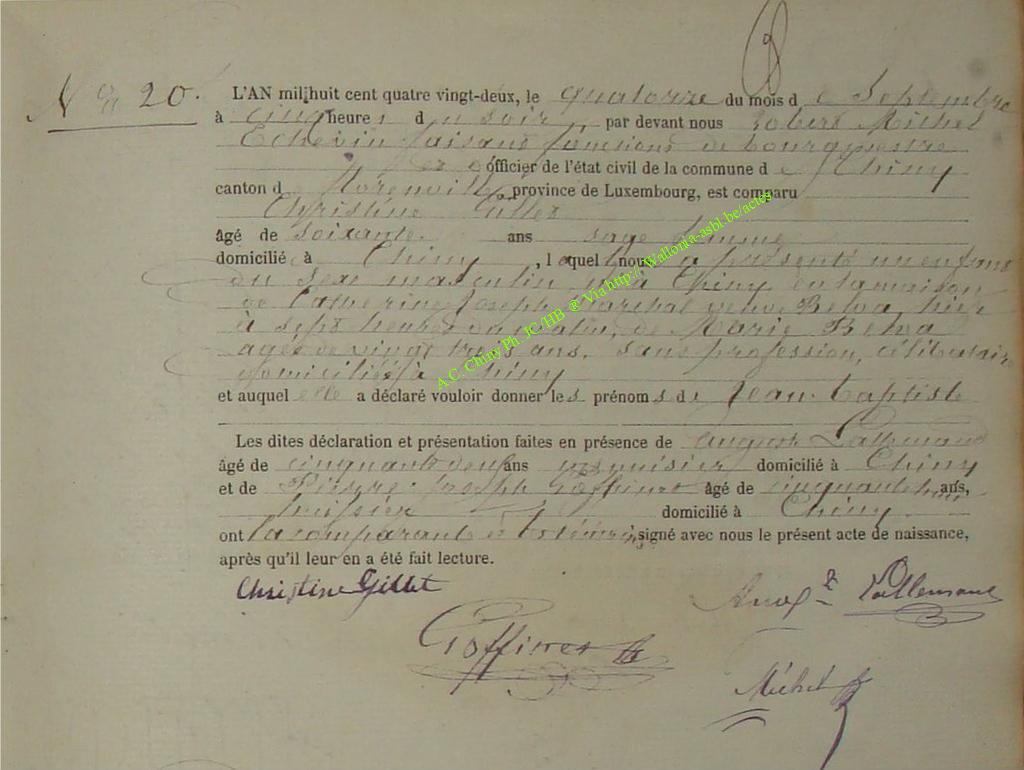 B
N° 20. L'AN mil huit cent quatre vingt-deux, le quatorze du mois de Septembre
à cinq heures du soir, par devant nous Robert Michel
Echevin faisant fonctions de bourgmestre
officier de l'état civil de la commune de Chiny
canton de Florenville, province de Luxembourg, est comparu
Christine Gillet
âgé de soixante ans sage femme
domiciliée à Chiny, laquelle nous a présenté un enfant
du sexe masculin, né à Chiny en la maison
de Catherine Joseph Marchal veuve Belva, hier
à sept heures du matin, de Marie Belva
agée de vingt trois ans, sans profession, célibataire
domiciliée à Chiny
et auquel elle a déclaré vouloir donner les prénoms de Jean-baptiste
Les dites déclaration et présentation faites en présence de August Lallemand
âgé de cinquante deux ans menuisier domicilié à Chiny
et de Pierre Joseph Goffinet âgé de cinquante ans,
huissier domicilié à Chiny
ont la comparante et témoins, signé avec nous le présent acte de naissance,
après qu'il leur en a été fait lecture.
Christine Gillet
Aug te Lallemand
Goffinet
Michel
A.C. Chiny Ph. JC/HB @ Via http://Wallonia-asbl.be/actes